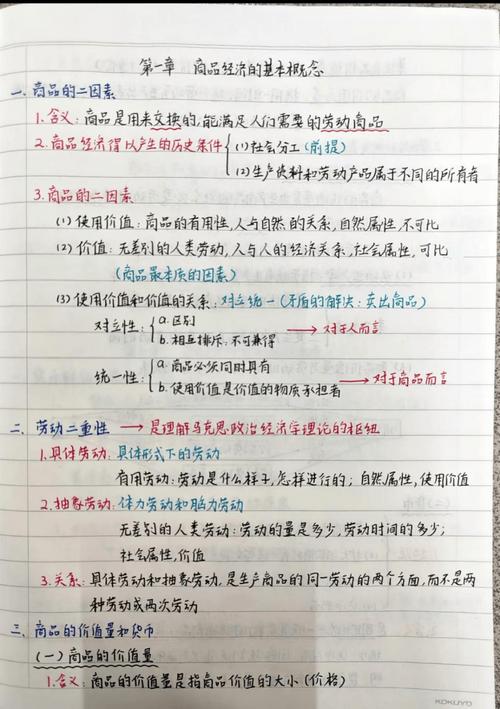 第一章 商品经济的基本概念
一. 商品的二因素
1. 含义: 商品是用来交换的, 能满足人们需要的劳动商品
2. 商品经济得以产生的历史条件 { (1) 社会分工 (前提)
(2) 生产资料和劳动产品属于不同的所有者
3. 商品的二因素
(1) 使用价值: 商品的有用性, 人与自然的关系, 自然属性, 不可比
(2) 价值: 无差别的人类劳动, 人与人的经济关系, 社会属性, 可比
(商品最本质的因素)
(3) 使用价值和价值的关系: 对立统一 (矛盾的解决: 卖出商品)
对立性: { a. 区别
b. 相互排斥, 不可兼得 → 对于人而言
统一性: { a. 商品必须同时具有
b. 使用价值是价值的物质承担者 → 对于商品而言
二. 劳动二重性 → 是理解马克思政治经济学理论的枢纽
1. 具体劳动: 具体形式下的劳动
有用劳动: 劳动是什么样子, 怎样进行的; 自然属性, 使用价值
2. 抽象劳动: 体力劳动和脑力劳动
无差别的人类劳动: 劳动的量是多少, 劳动时间的多少;
社会属性, 价值
3. 关系: 具体劳动和抽象劳动, 是生产商品的同一劳动的两个方面, 而不是两
种劳动或两次劳动
三. 商品的价值量和货币
(一) 商品的价值量
1. 含义: 商品的价值量是指商品价值的大小 (价格)
KOKUYO